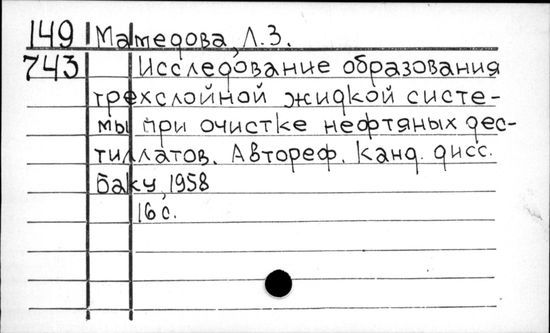 149 Мамедова, Л.З.
743 Исследование образования
трехслойной жидкой систе-
мы при очистке нефтяных дес-
тиллатов. Автореф. канд. дисс.
Баку, 1958
16 с.